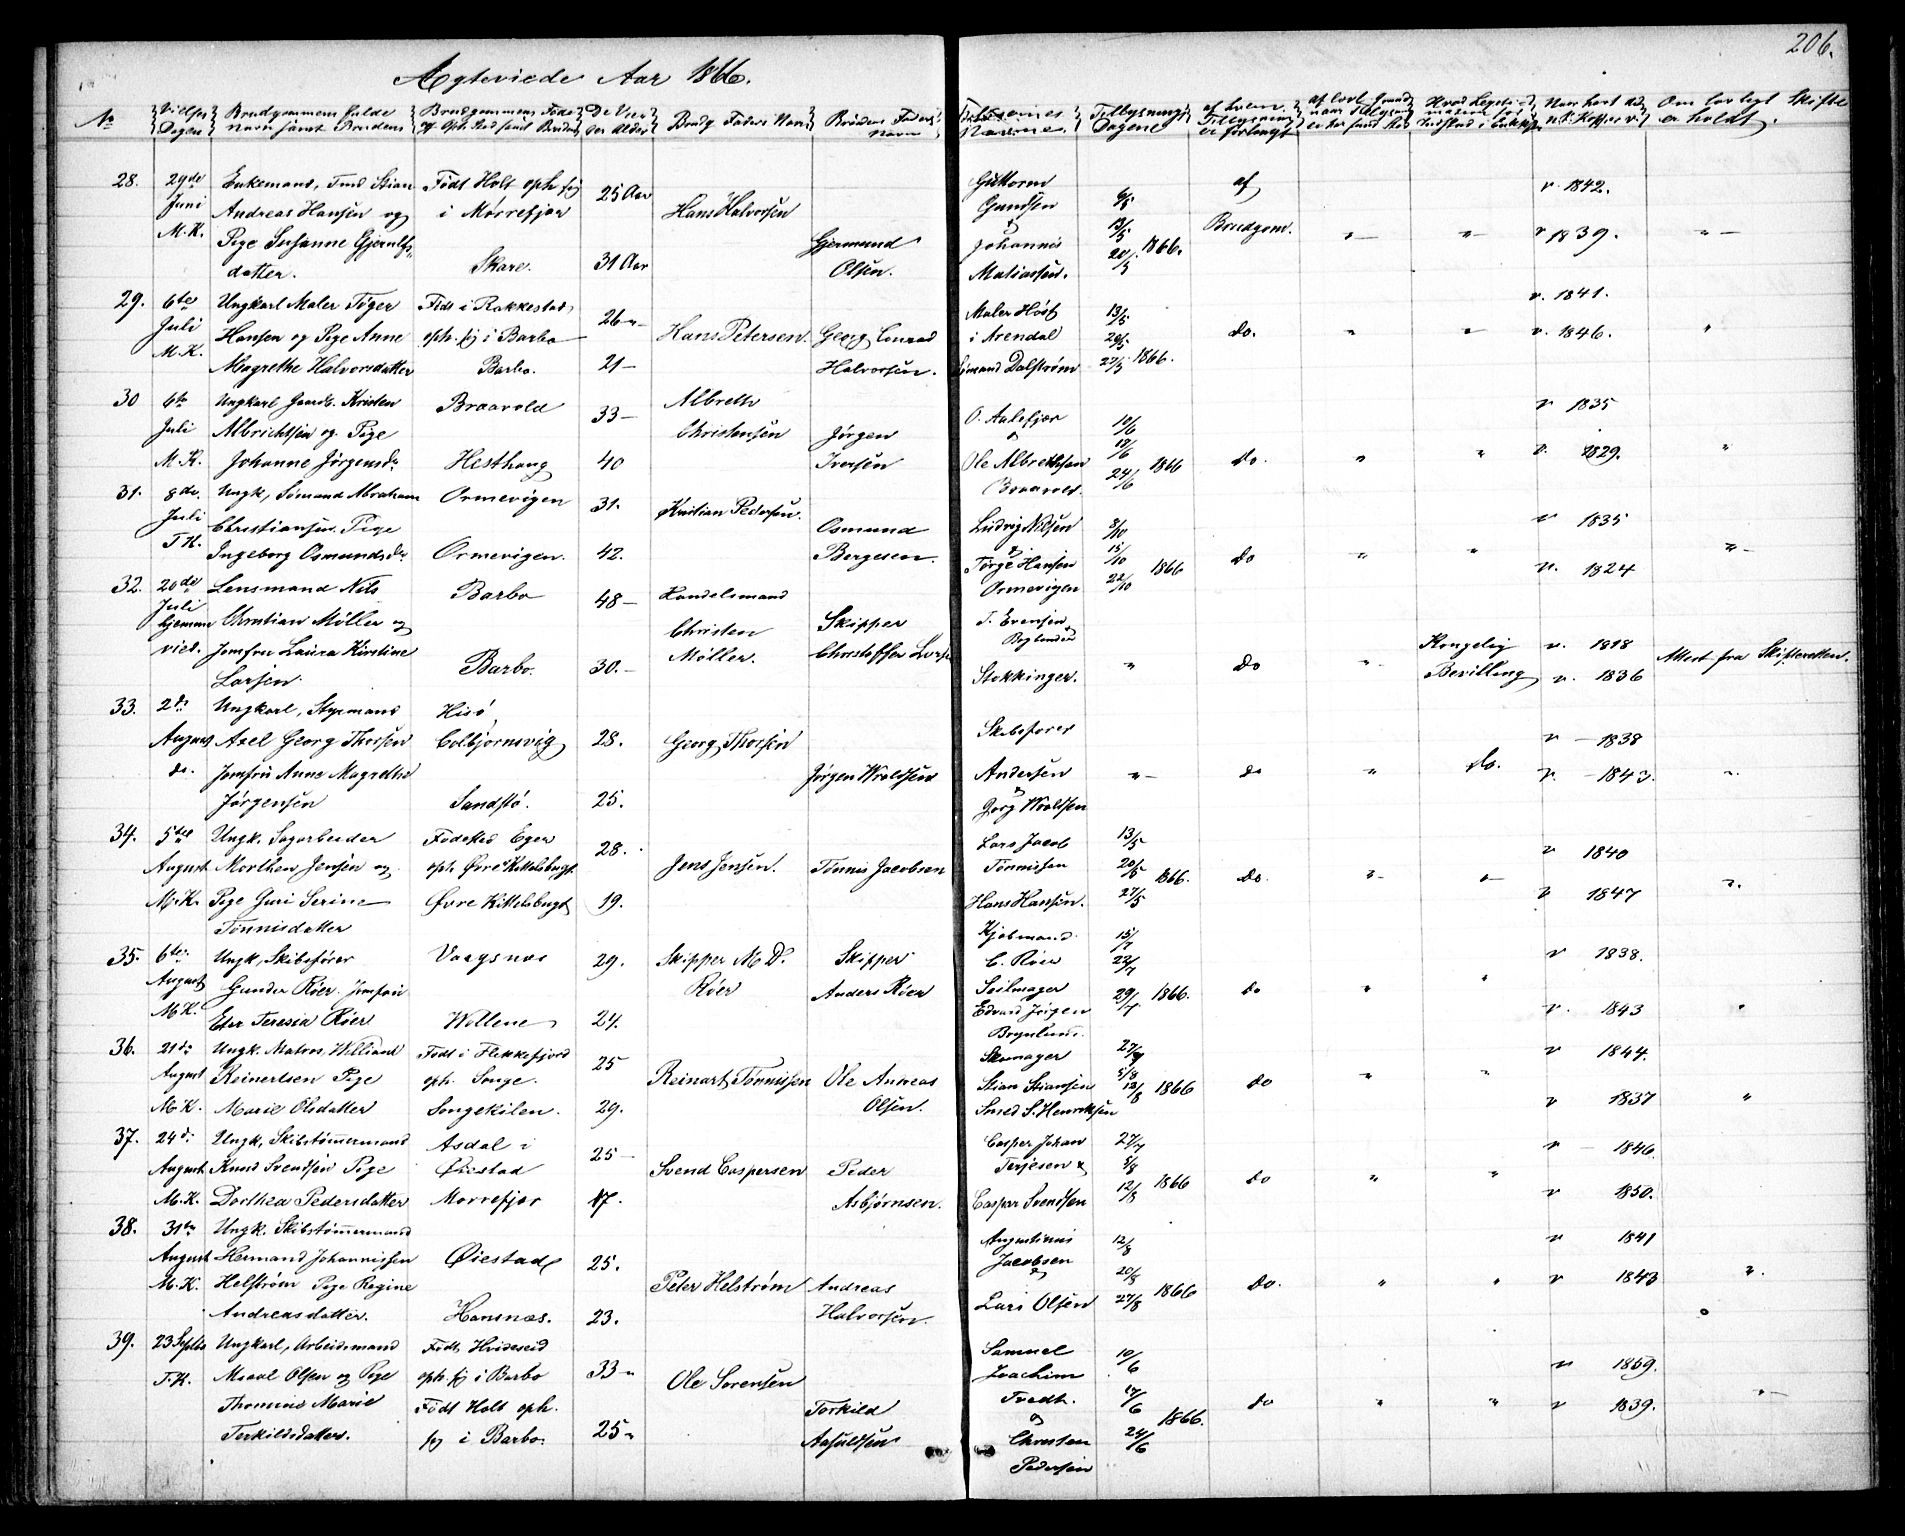 206.
Ægteviede Aar 1866.
No
Vielses Dagen
Brudgommens fulde Navn samt Brudens
Brudgommens Føde og Oph. Sted samt Brudens
De Vies der Alder
Brudg Faders Navn
Brudens Faders Navn
Forlovernes Navne
Tillysnings Dagene
af hvem Tillysning er forlangt
Om lovligt Skifte er holdt.
28. 29de Enkemand, Tmd Stian Født Holt oph. sig 25 Aar Guttorm 6/5 af v. 1842.
Juni Andreas Hansen og i Mørrefjær Hans Halvorsen Gundsen 13/5 Brudgom.
M.K. Pige Susanne Gjerulfs Gjermund & Johannis 20/5 1866. " " v 1839. "
datter. Skare. 31 Aar Olsen. Matiassen.
29. 6te Ungkarl Maler Tøger Født i Rakkestad 26 " Maler Høst 13/5 v. 1841.
Juli Hansen og Pige Anne oph. sig i Barbo Hans Petersen. Georg Conrad i Arendal 20/5 do. " " v. 1846. "
M.K. Magrethe Halvorsdatter Barbo. 21 Halvorsen. Dalstrøm 27/5 1866.
30 6te Ungkarl Gaardb. Kristen Braavold 33 Albreth O. Aalefjær 10/6 v 1835
Juli Albrichtsen og Pige Christensen Jørgen & 17/6
M.K. Johanne Jørgensdr Hesthaug 40 Iversen Ole Albrethsen 24/6 1866 do. " " v. 1829. "
Braavold.
31. 8de Ungk, Sømand Abraham Ormevigen 31. Kristian Pedersen. Ludvig Nilsen 8/10 v 1835
Juli Christiansen. Pige Osmund & 15/10
T.K. Ingeborg Osmundsdr Ormevigen. 42. Bergesen. Tørge Hansen 22/10 1866 do " " v. 1824 "
Ormevigen
32. 20de Lensmand Nils Barbo 48 Handelsmand T. Evensen
Juli Christian Møller og Christen Skipper
hjemme Jomfru Laura Kirstine Møller. Christoffer Kongelig v. 1818
vied. Larsen. Barbo. 30. Stokkinger. " do " Bevilling v. 1836 Attest fra Skifteretten.
33. 2de Ungkarl, Styrmand Hisø Skibsfører
August Axel Georg Thorsen Colbjornsvig 28. Georg Thorsen v 1838
do. Jomfru Anne Magrethe Jørgen Wroldsen Andersen " do " do. v. 1843. "
Jørgensen Sandstø. 25. & Georg Wroldsen
34. 5te Ungk. Sagarbeider Fødested Eger 28. Lars Jacob 13/5 v 1840
August Morthen Jensen og oph. Øvre Kittelsbugt. Jens Jensen. Tønnis Jacobsen Tønnissen 20/5 1866. do. " "
M.K. Pige Guri Serine Øvre Kittelsbugt 19. Hans Hansen. 27/5 v 1847 "
Tønnisdatter
35. 6te Ungk, Skibsfører Vaagsnæs 29. Skipper M D. Skipper Kjøbmand 15/7 v 1838.
August Gunder Røer. Jomfru Røer Anders Røer C. Røer 22/7
M.K. Teresia Røer Wollene 24. Seilmager 29/7 1866. do " " v. 1843 "
Edvard Jørgen Brynlund.
36. 21de Ungk. Matros Williard Født i Flekkefjord 25 Skomager 27/7 v 1844.
August Reinertsen Pige oph. Songe. Reinart Tønnissen Ole Andreas Stian Stiansen 5/8 12/8 1866 do " "
M.K. Marie Olsdatter Songekilen. 29. Olsen. Smed S. Henriksen v 1837 "
37. 24de Ungk, Skibstømmermand Asdal i 25 Casper Johan 27/7 v 1846.
August Knud Svendsen Pige Øiestad Svend Caspersen Peder Terjesen & 5/8
M.K. Dorthea Pedersdatter Morrefjær 17. Asbjørnsen. Caspar Svendsen 12/8 1866 do " " v 1850.
38. 31te Ungk. Skibstømmermand Augustinus 12/8 v 1841
August Hermand Johannissen Øiestad 25. Jacobsen 20/8
M.K. Helstrøm Pige Regine Peter Helstrøm Andreas & Lars Olsen 27/8 1866 do. " " v 1843 "
Andreasdatter. Hansnæs. 23. Halvorsen.
39. 23 Septbr Ungkarl, Arbeidsmand Født Hvideseid 33 Samuel 10/6
T.K. Olsen og Pige oph. sig i Barbo Ole Sorensen Joachim v 1859.
Thomine Marie Født Holt oph. Torkild Tvedt. 17/6 do " " v 1839. "
Terkildsdatter. sig i Barbo. 25 Aasuldsen & Christen 24/6 1866.
Pedersen